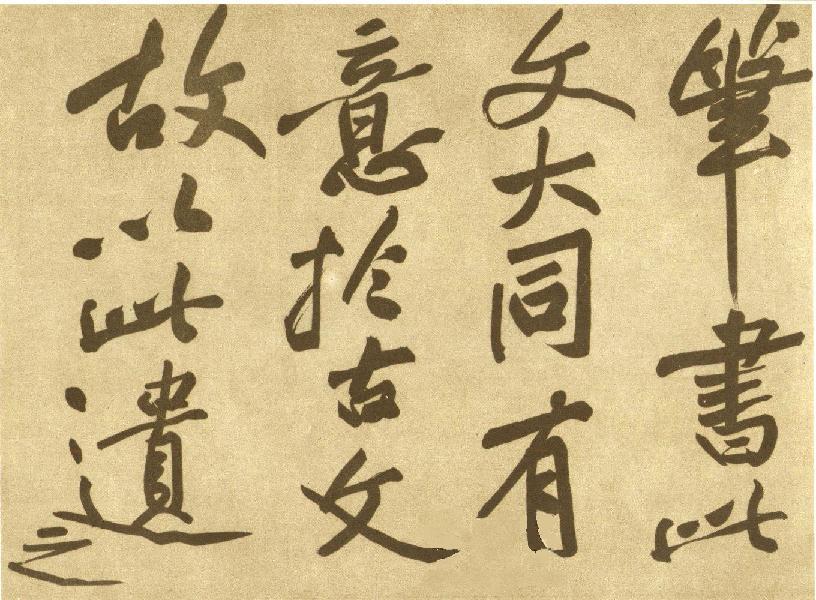 筆書此
文大同有
意於古文
故以此遺之